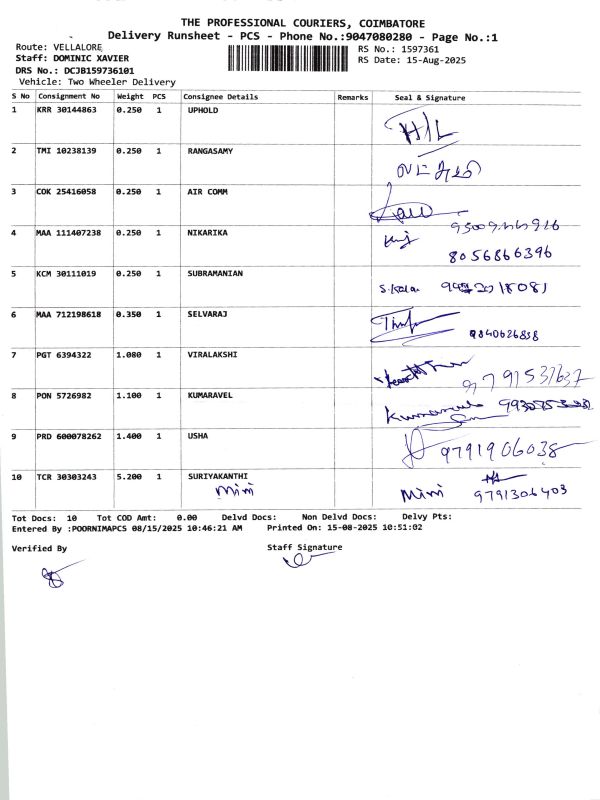 THE PROFESSIONAL COURIERS, COIMBATORE
Delivery Runsheet - PCS - Phone No.:9047080280 - Page No.:1
Route: VELLALORE
Staff: DOMINIC XAVIER
DRS No.: DCJB159736101
Vehicle: Two Wheeler Delivery
RS No.: 1597361
RS Date: 15-Aug-2025
S No Consignment No Weight PCS Consignee Details Remarks Seal & Signature
1 KRR 30144863 0.250 1 UPHOLD H/L
2 TMI 10238139 0.250 1 RANGASAMY
3 COK 25416058 0.250 1 AIR COMM
4 MAA 111407238 0.250 1 NIKARIKA
8056866396
5 KCM 30111019 0.250 1 SUBRAMANIAN S.Kala
6 MAA 712198618 0.350 1 SELVARAJ 9840626838
7 PGT 6394322 1.080 1 VIRALAKSHI 9791537637
8 PON 5726982 1.100 1 KUMARAVEL
9 PRD 600078262 1.400 1 USHA 9791906038
10 TCR 30303243 5.200 1 SURIYAKANTHI
Mini Mini 9791306403
Tot Docs: 10 Tot COD Amt: 0.00 Delvd Docs: Non Delvd Docs: Delvy Pts:
Entered By :POORNIMAPCS 08/15/2025 10:46:21 AM Printed On: 15-08-2025 10:51:02
Verified By Staff Signature